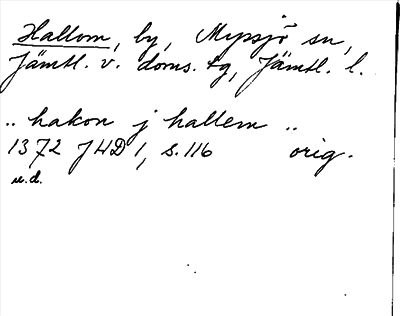 Hallom, by, Myssjö sn,
Jämtl. v. doms. tg, Jämtl. l.
.. hakon j hallem ..
1372 JHD 1, s. 116 orig.
u.d.